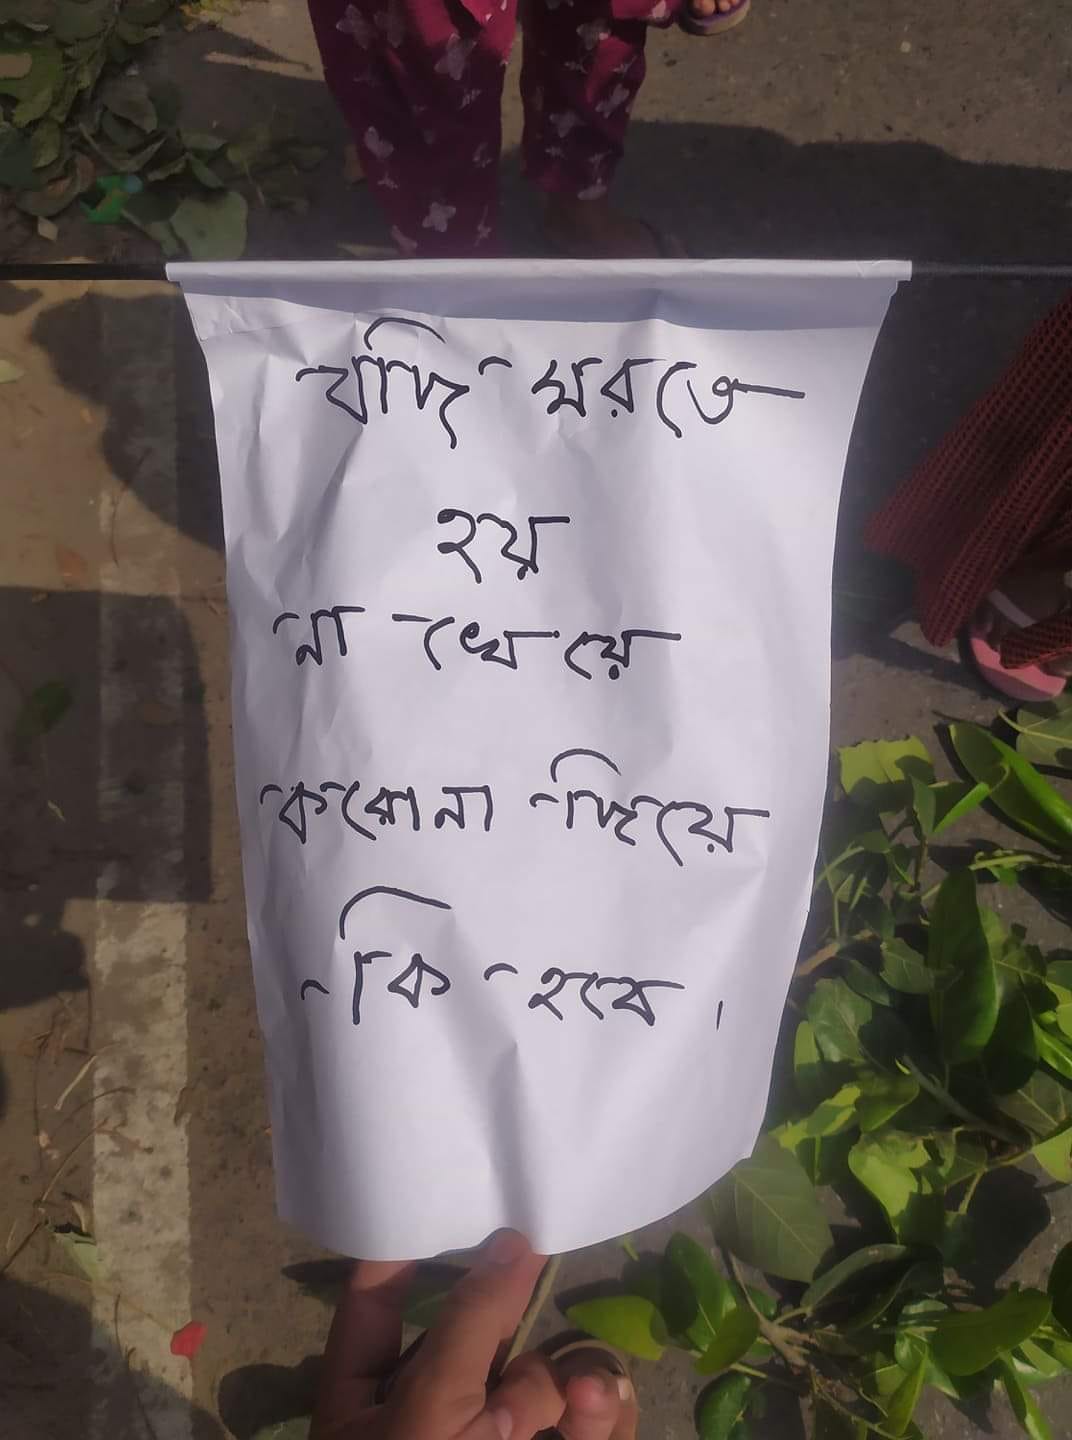 যদি মরতে
হয়
না খেয়ে
করোনা দিয়ে
কি হবে।